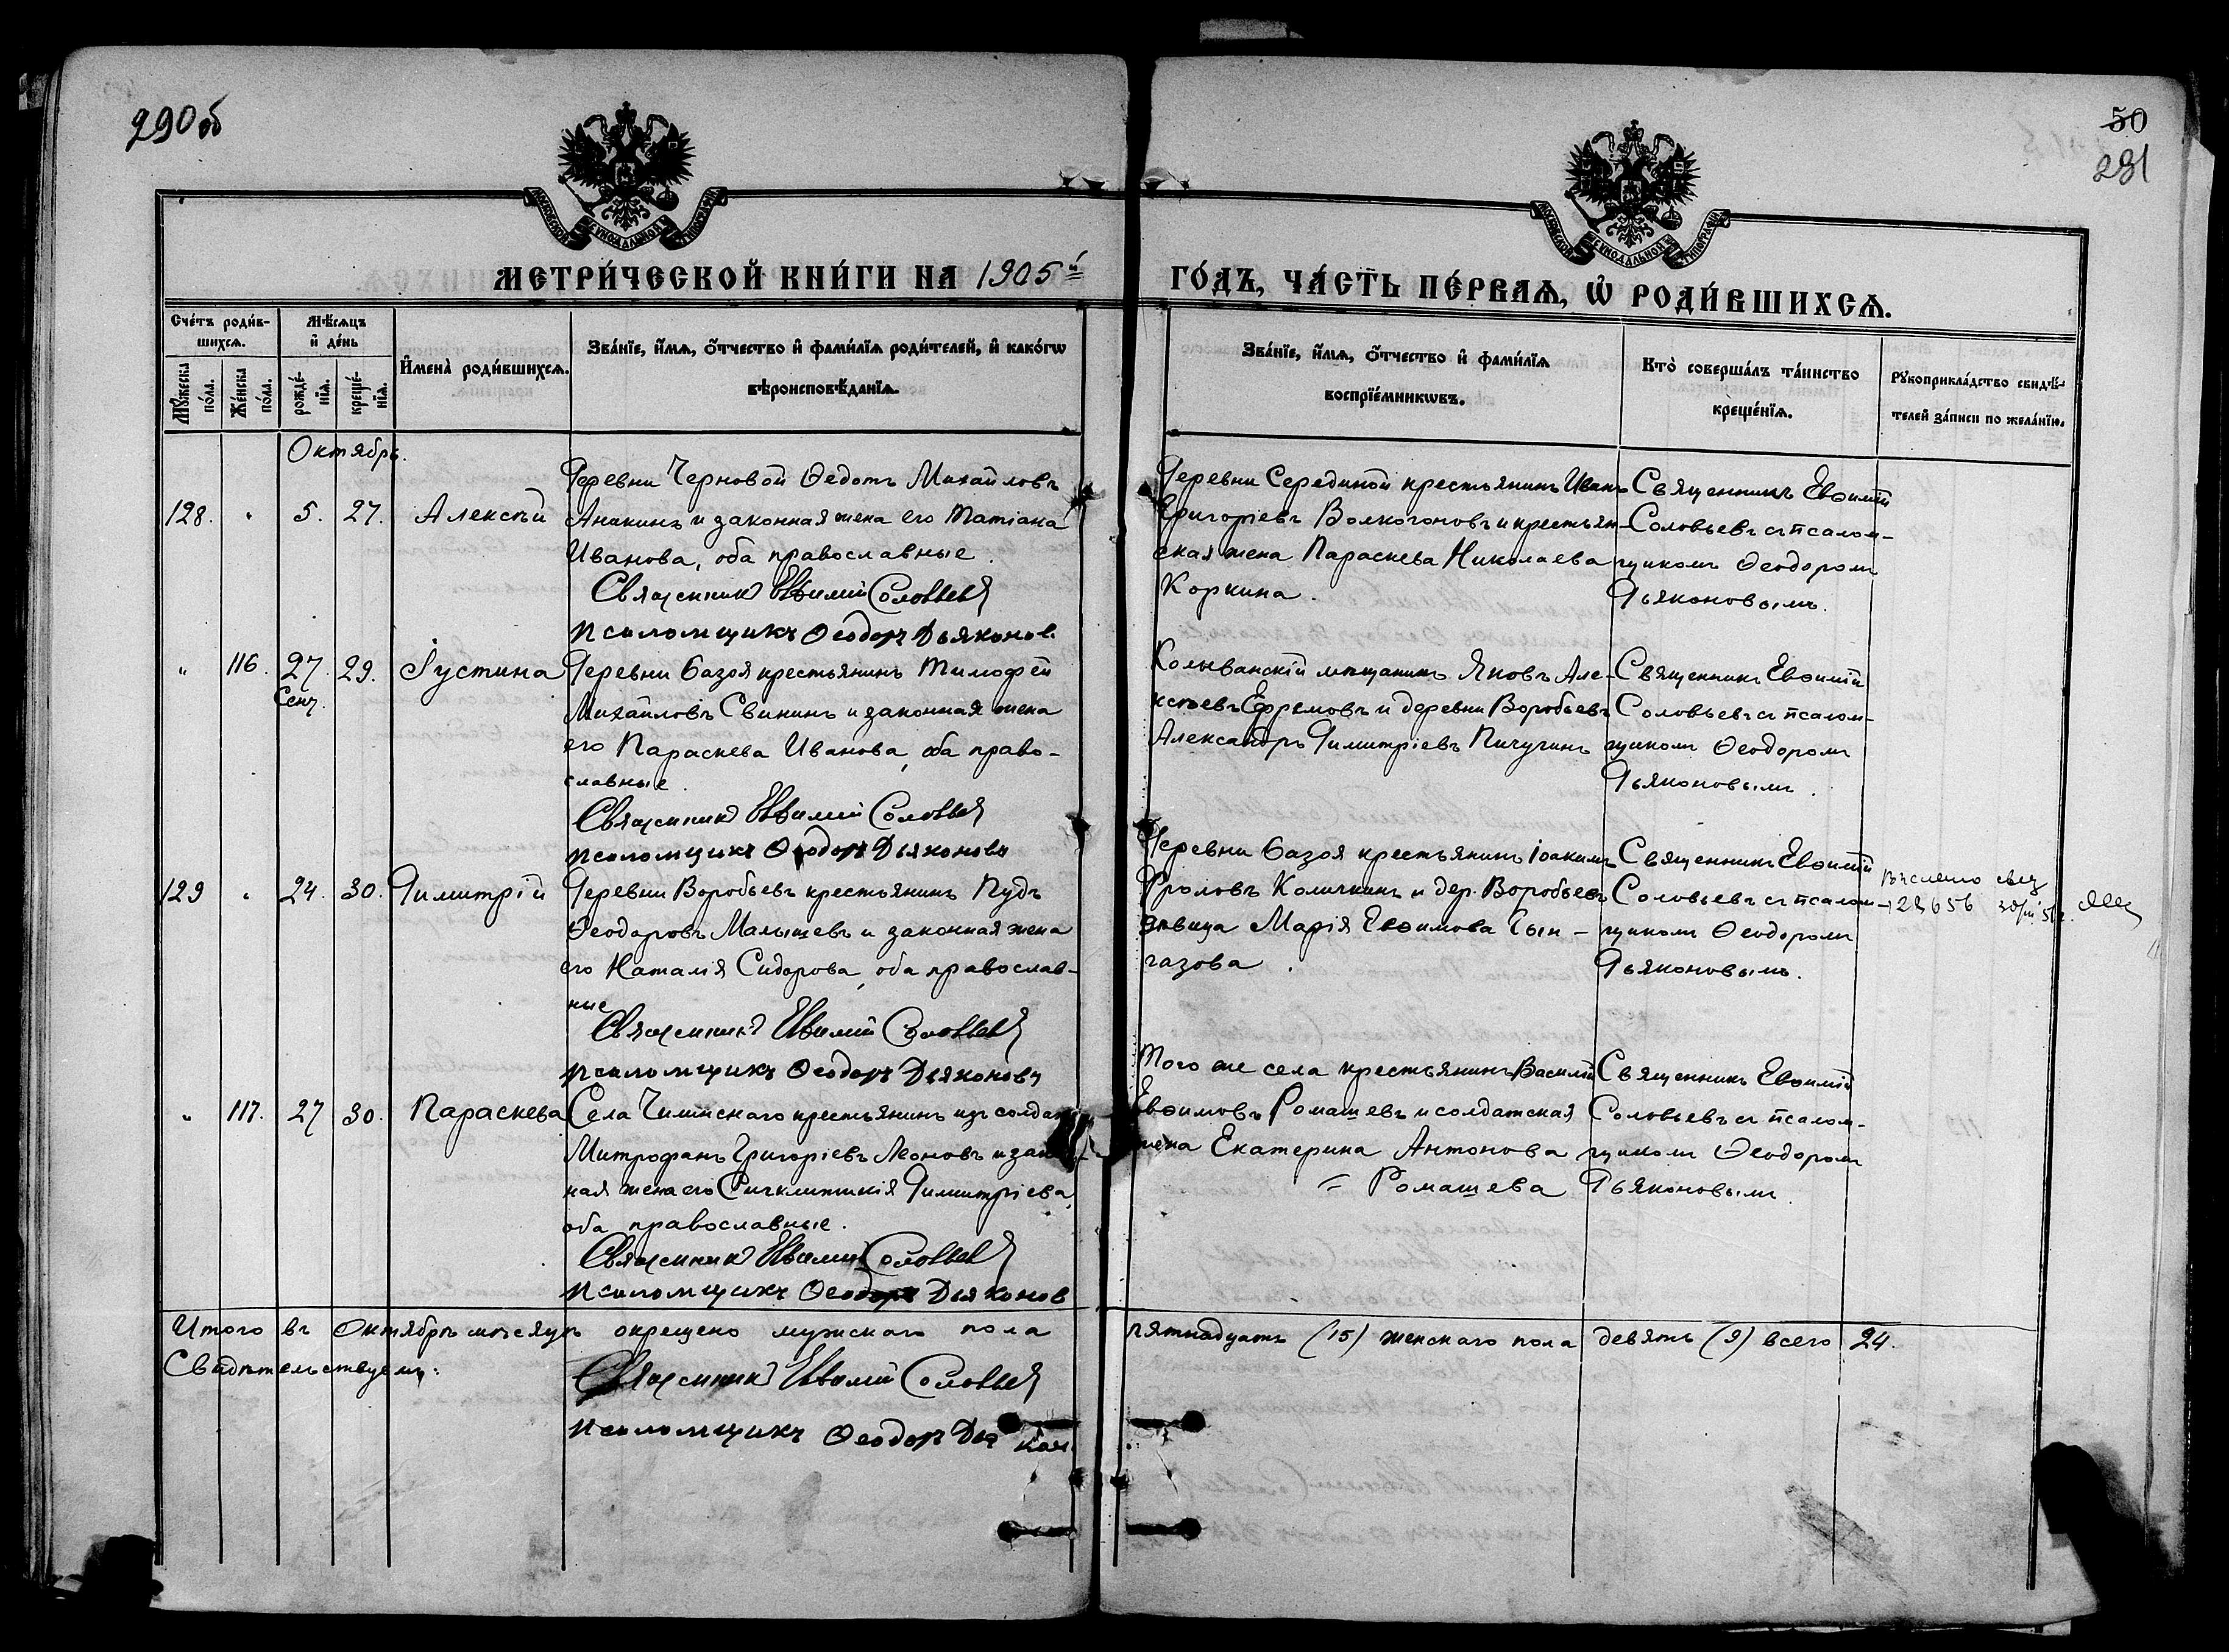 290 об
50
291
МОСКОВСКОЙ СѴНОДАЛЬНОЙ ТИПОГРАФІИ
МОСКОВСКОЙ СѴНОДАЛЬНОЙ ТИПОГРАФІИ
МЕТРИ́ЧЕСКОЙ КНИ́ГИ НА 1905й
ГО́ДЪ, ЧА́СТЬ ПЕ́РВАѦ, Ѡ҆ РОДИ́ВШИХСѦ.
Сче́тъ роди́в-
шихсѧ.
Мѣ́сѧцъ
и҆ де́нь
Мꙋ́жеска
по́ла.
Же́нска
по́ла.
рожде́-
нїѧ.
креще́-
нїѧ.
И҆мена̀ роди́вшихсѧ.
Зва́нїе, и҆́мѧ, ѻ҆́тчество и҆ фами́лїѧ роди́телей, и҆ како́гѡ
вѣроисповѣ́данїѧ.
Зва́нїе, и҆́мѧ, ѻ҆́тчество и҆ фами́лїѧ
воспрїе́мникѡвъ.
Кто̀ соверша́лъ та́инство
креще́нїѧ.
Рꙋкоприкла́дство свидѣ́-
телей за́писи по жела́нїю.
Октябрь.
128. " 5. 27. Алексѣй
Деревни Черновой Ѳедотъ Михайловъ
Аникинъ и законная жена его Татіана
Иванова, оба православные.
Священникъ Евѳимій Соловьевъ
псаломщикъ Ѳеодоръ Дьяконов.
Деревни Серединой крестьянинъ Иванъ
Григоріевъ Волкогоновъ и крестьян-
ская жена Параскева Николаева
Коркина.
Священникъ Евѳимій
Соловьевъ съ псалом-
щикомъ Ѳеодоромъ
Дьяконовымъ.
" 116. 27 Сент. 29. Іустина
Деревни Базоя крестьянинъ Тимофей
Михайловъ Свининъ и законная жена
его Параскева Иванова, оба право-
славные.
Священникъ Евѳимій Соловьевъ
псаломщикъ Ѳеодоръ Дьяконовъ
Колыванскій мѣщанинъ Яковъ Але-
ксѣевъ Ефремовъ и деревни Воробьевъ
Александръ Димитріевъ Пичугинъ
Священникъ Евѳимій
Соловьевъ съ псалом-
щикомъ Ѳеодоромъ
Дьяконовымъ.
129 " 24. 30. Димитрій
Деревни Воробьевъ крестьянинъ Пудъ
Ѳеодоровъ Малышевъ и законная жена
его Наталія Сидорова, оба православ-
ные
Священникъ Евѳимій Соловьевъ
псаломщикъ Ѳеодоръ Дьяконовъ
Деревни Базоя крестьянинъ Іоакимъ
Фроловъ Количкинъ и дер. Воробьевъ
дѣвица Марія Евѳимова Сын-
газова.
Священникъ Евѳимій
Соловьевъ съ псалом-
щикомъ Ѳеодоромъ
Дьяконовымъ.
" 117. 27 30. Параскева
Села Чилинскаго крестьянинъ изъ солдатъ
Митрофанъ Григоріевъ Леоновъ и закон-
ная жена его Сигклитикія Димитріева,
оба православные.
Священникъ Евѳимій Соловьевъ
псаломщикъ Ѳеодоръ Дьяконов
Того же села крестьянинъ Василій
Евѳимовъ Ромашевъ и солдатская
жена Екатерина Антонова
= Ромашева
Священникъ Евѳимій
Соловьевъ съ псалом-
щикомъ Ѳеодоромъ
Дьяконовымъ.
Итого въ Октябрѣ мѣсяцѣ окрещено мужскаго пола пятнадцать (15) женскаго пола девять (9) всего 24.
Свидѣтельствуемъ:
Священникъ Евѳимій Соловьевъ
псаломщикъ Ѳеодоръ Дья кон.